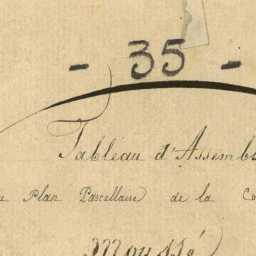 - 35 -
Tableau d'Assemb
Plan Parcellaire de la Co